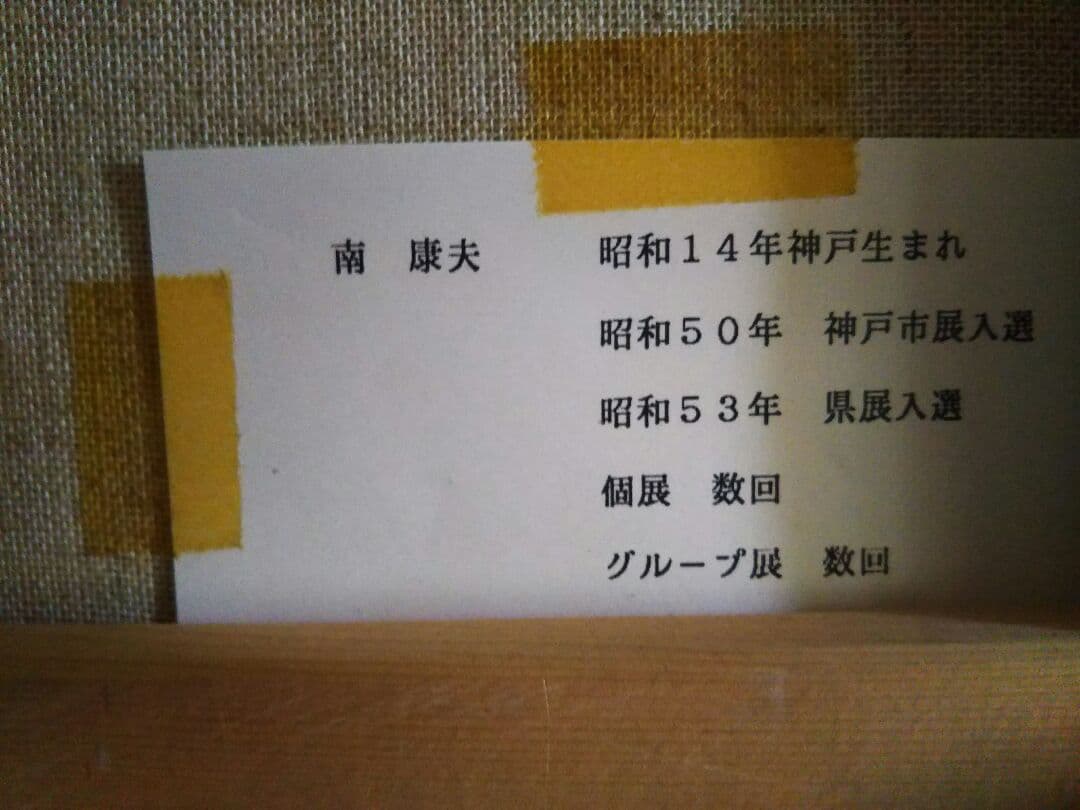 南　康夫　昭和１４年神戸生まれ
昭和５０年　神戸市展入選
昭和５３年　県展入選
個展　数回
グループ展　数回